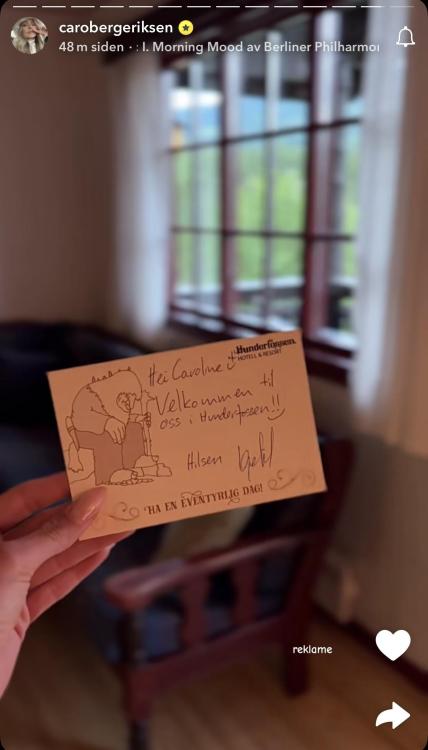 carobergeriksen
48 m siden · : I. Morning Mood av Berliner Philharmor
Hunderfossen
HOTELL & RESORT
Hei Caroline
Velkommen til
oss i Hunderfossen!!
Hilsen
HA EN EVENTYRLIG DAG!
reklame